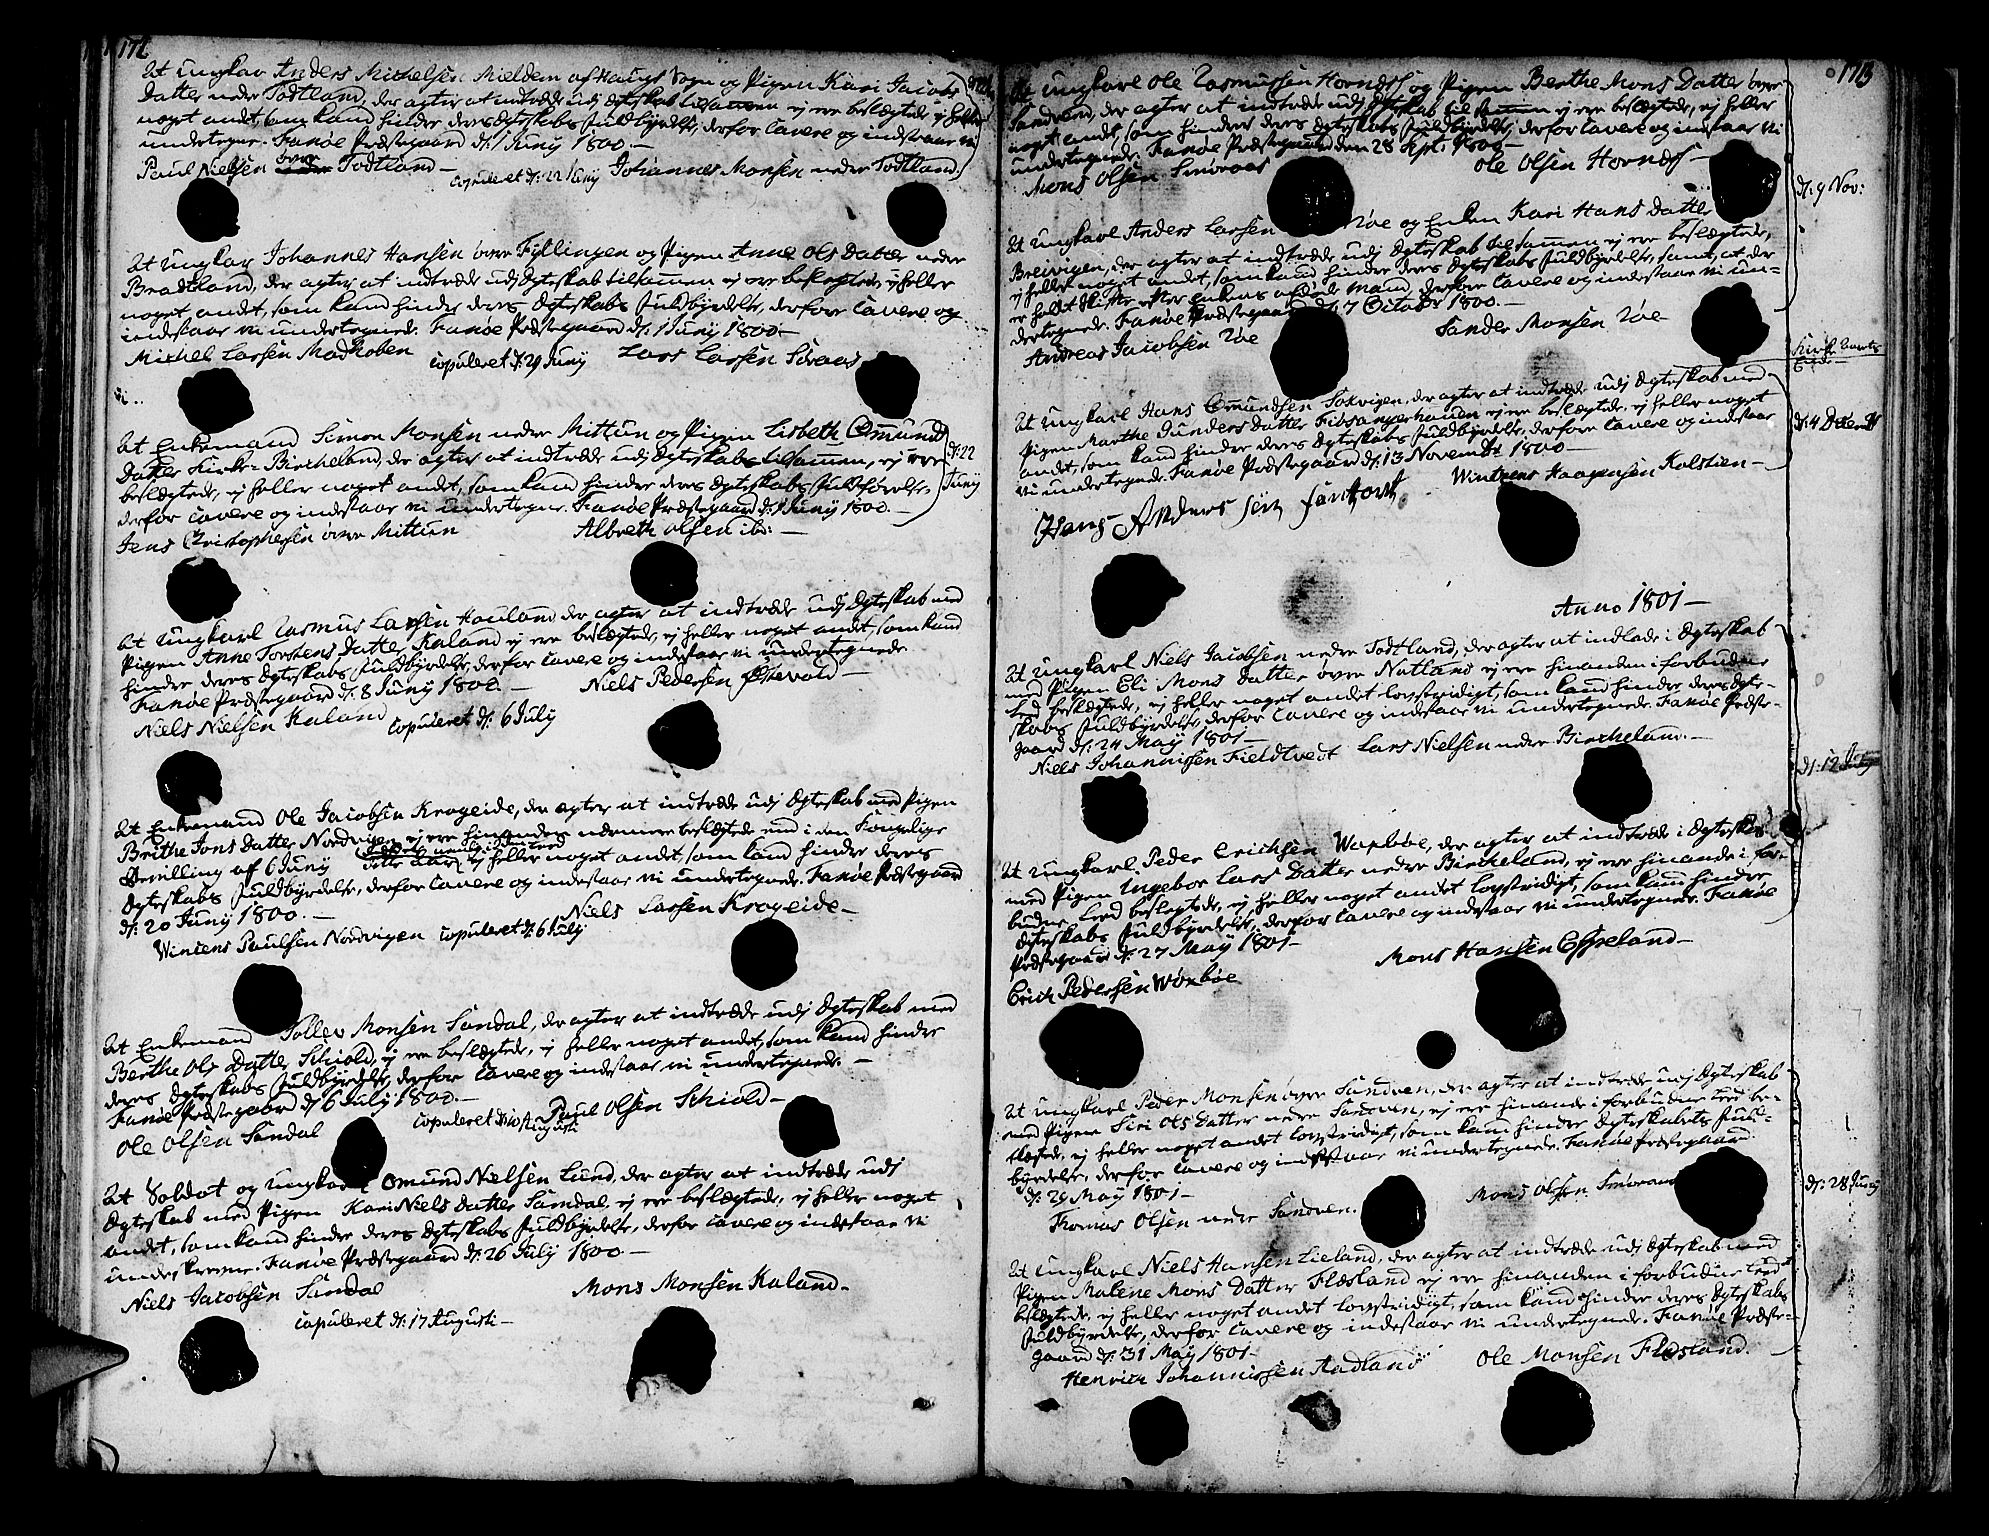 172
At Ungkar Anders Michelsen Mieldem af Haugs Sogn og Pigen Kari Jacobs
Datter nedre Todtland, der agter at indtræde udj Ægteskab tilsammen ej ere beslægtede, ej heller
noget andet, som kand hindre deres Ægteskabs Fuldbyrdelse, derfor cavere og indestaar vi
undertegne. Fanøe Præstegaard d: 1 Juny 1800.—
Paul Nielsen øvre Todtland— copuleret d: 22 Juny Johannes Monsen nedre Todtland.
At Ungkar Johannes Hansen øvre Fyllingen og Pigen Anne Ols Datter nedre
Bradtland, der agter at indtræde udj Ægteskab tilsammen ej ere beslægtede, ej heller
noget andet, som kand hindre deres Ægteskabs Fuldbyrdelse, derfore cavere og
indestaar vi undertegnede. Fanøe Præstegaard d: 1 Juny 1800—
Michel Larsen Madhoben copuleret d: 29 Juny Lars Larsen Søraas
At Enkemand Simon Monsen nedre Mittun og Pigen Lisbeth Ommund
Datter Kirke-Bircheland, der agter at indtræde udj Ægteskabs tilsammen, ej ere
d: 22
beslægtede, ej heller noget andet, som kand hindre deres Ægteskabs Fuldførelse,
Juny
derfor cavere og indestaar vi undertegne. Fanøe Præstegaard d: 1 Juny 1800.—
Jens Christophersen øvre Mittun Albreth Olsen ibd:—
At Ungkarl Rasmus Larsen Hauland, der agter at indtræde udj Ægteskab med
Pigen Anne Torstens Datter Kaland ej ere beslægtede, ej heller noget andet, som kand
hindre deres Ægteskabs Fuldbyrdelse, derfor cavere og indestaar vi undertegnede.
Fanøe Præstegaard d: 8 Juny 1800.— Niels Pedersen Østevold—
Niels Nielsen Kaland copuleret d: 6 July
At Enkemand Ole Jacobsen Krogeide, der agter at indtræde udj Ægteskab med Pigen
Brithe Jons Datter Nordvigen ej ere hinanden nærmere beslægtede end i den Kongelige
Bevilling af 6 Juny ej heller noget andet, som kand hindre deres
Ægteskabs Fuldbyrdelse, derfor cavere og indestaar vi undertegnede. Fanøe Præstegaard
d: 20 Juny 1800.— Niels Larsen Krogeide—
Wincens Paulsen Nordvigen copuleret d: 6 July
At Enkemand Tollev Monsen Sandal, der agter at indtræde udj Ægteskab med
Berthe Ols Datter Schiold, ej ere beslægtede, ej heller noget andet, som kand hindre
deres Ægteskabs Fuldbyrdelse, derfor cavere og indestaar vi undertegnede.—
Fanøe Præstegaard d: 6 July 1800.— Paul Olsen Schiold—
Ole Olsen Sandal copuleret d: 10 Augusti
At Soldat og Ungkarl Omund Nielsen Lund, der agter at indtræde udj
Ægteskab med Pigen Kari Niels Datter Sandal, ej ere beslægtede, ej heller noget
andet, som kand hindre deres Ægteskabs Fuldbyrdelse, derfor cavere og indestaar vi
underskrevne. Fanøe Præstegaard d: 26 July 1800—
Niels Jacobsen Sandal Mons Monsen Kaland—
copuleret d: 17 Augusti—
173
At Ungkarl Ole Rasmussen Hornæs og Pigen Berthe Mons Datter øvre
Sandven, der agter at indtræde udj Ægteskab tilsammen ej ere beslægtede, ej heller
noget andet, som hindrer deres Ægteskabs Fuldbyrdelse, derfor cavere og indestaar vi
undertegnede. Fanøe Præstegaard den 28 Sept: 1800—
Mons Olsen Smøraas Ole Olsen Hornæs—
d: 9 Nov:
At Ungkarl Anders Larsen Røe og Enken Kari Hans Datter
Breivigen, der agter at indtræde udj Ægteskab tilsammen ej ere beslægtede,
ej heller noget andet, som kand hindre deres Ægteskabs Fuldbyrdelse, samt, at der
er holdt Skifte efter Enkens afdøde Mand, derfore cavere og indestaar vi un-
dertegnede. Fanøe Præstegaard d: 7 October 1800.—
Andreas Jacobsen Røe Sander Monsen Røe
At Ungkarl Hans Omundsen Sørvigen, der agter at indtræde udj Ægteskab med
Pigen Marthe Gunders Datter Tidsangerhaugen ej ere beslægtede, ej heller noget
andet, som kand hindre deres Ægteskabs Fuldbyrdelse, derfore cavere og indestaar
vi undertegnede. Fanøe Præstegaard d: 13 November 1800—
Hans Andersen Wintzens Haagensen Kolstien—
d: 4 Decembr
Anno 1801—
At Ungkarl Niels Jacobsen nedre Todtland, der agter at indlade i Ægteskab
med Pigen Eli Mons Datter øvre Natland ej ere hinanden i forbudne
Leed beslægtede, ej heller noget andet lovstridigt, som kand hindre deres Ægte-
skabs Fuldbyrdelse, derfor cavere og indestaar vi undertegnede. Fanøe Præste-
gaard d: 24 May 1801—
Niels Johannissen Fieldtvedt Lars Nielsen nedre Bircheland.—
d: 12 July
At Ungkarl Peder Erichsen Warbøe, der agter at indtræde i Ægteskab
med Pigen Ingebor Lars Datter nedre Bircheland, ej ere hinande i for-
budne Leed beslegtede, ej heller noget andet lovstridigt, som kand hindre
Ægteskabs Fuldbyrdelse, derfor cavere og indestaar vi undertegnede. Fanøe
Præstegaard d: 27 May 1801—
Erich Pedersen Warbøe Mons Hansen Espeland—
At Ungkarl Peder Monsen øvre Sandven, der agter at indtræde udj Ægteskab
med Pigen Siri Ols Datter nedre Sandven, ej ere hinande i forbudne Leed be-
slægtede, ej heller noget andet lovstridigt, som kand hindre Ægteskabets Fuld-
byrdelse, derfor cavere og indestaar vi undertegnede. Fanøe Præstegaard
d: 29 May 1801—
Thomas Olsen nedre Sandven. Mons Olsen Smøraas
d: 28 Juny
At Ungkarl Niels Hansen Lieland, der agter at indtræde udj Ægteskab med
Pigen Malene Mons Datter Flæsland ej ere hinanden i forbudne Leed
beslægtede, ej heller noget andet lovstridigt, som kand hindre deres Ægteskabs
Fuldbyrdelse, derfor cavere og indestaar vi undertegnede. Fanøe Præste-
gaard d: 31 May 1801—
Henrich Johannissen Aadland Ole Monsen Flæsland.